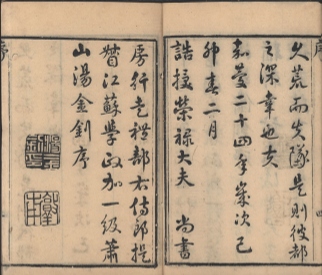 久荒而失隊是則彼都
之深幸也夫
嘉慶二十四年歲次己
卯春二月
誥授榮祿大夫 尚書
房行走禮部右侍郎提
督江蘇學政加一級蕭
山湯金釗序